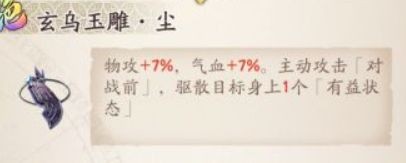 玄乌玉雕·尘
物攻+7%，气血+7%。主动攻击「对
战前」，驱散目标身上1个「有益状
态」